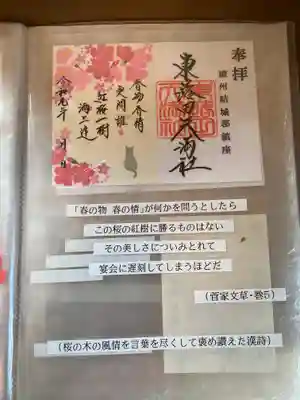 奉拝
總州結城郡鎮座
東蕗田天満社
春物春情
更問誰
紅桜一樹
海上遅
令和元年 月 日
「春の物 春の情」が何かを問うとしたら
この桜の紅樹に勝るものはない
その美しさについみとれて
宴会に遅刻してしまうほどだ
(菅家文草・巻5)
(桜の木の風情を言葉を尽くして褒め讃えた漢詩)